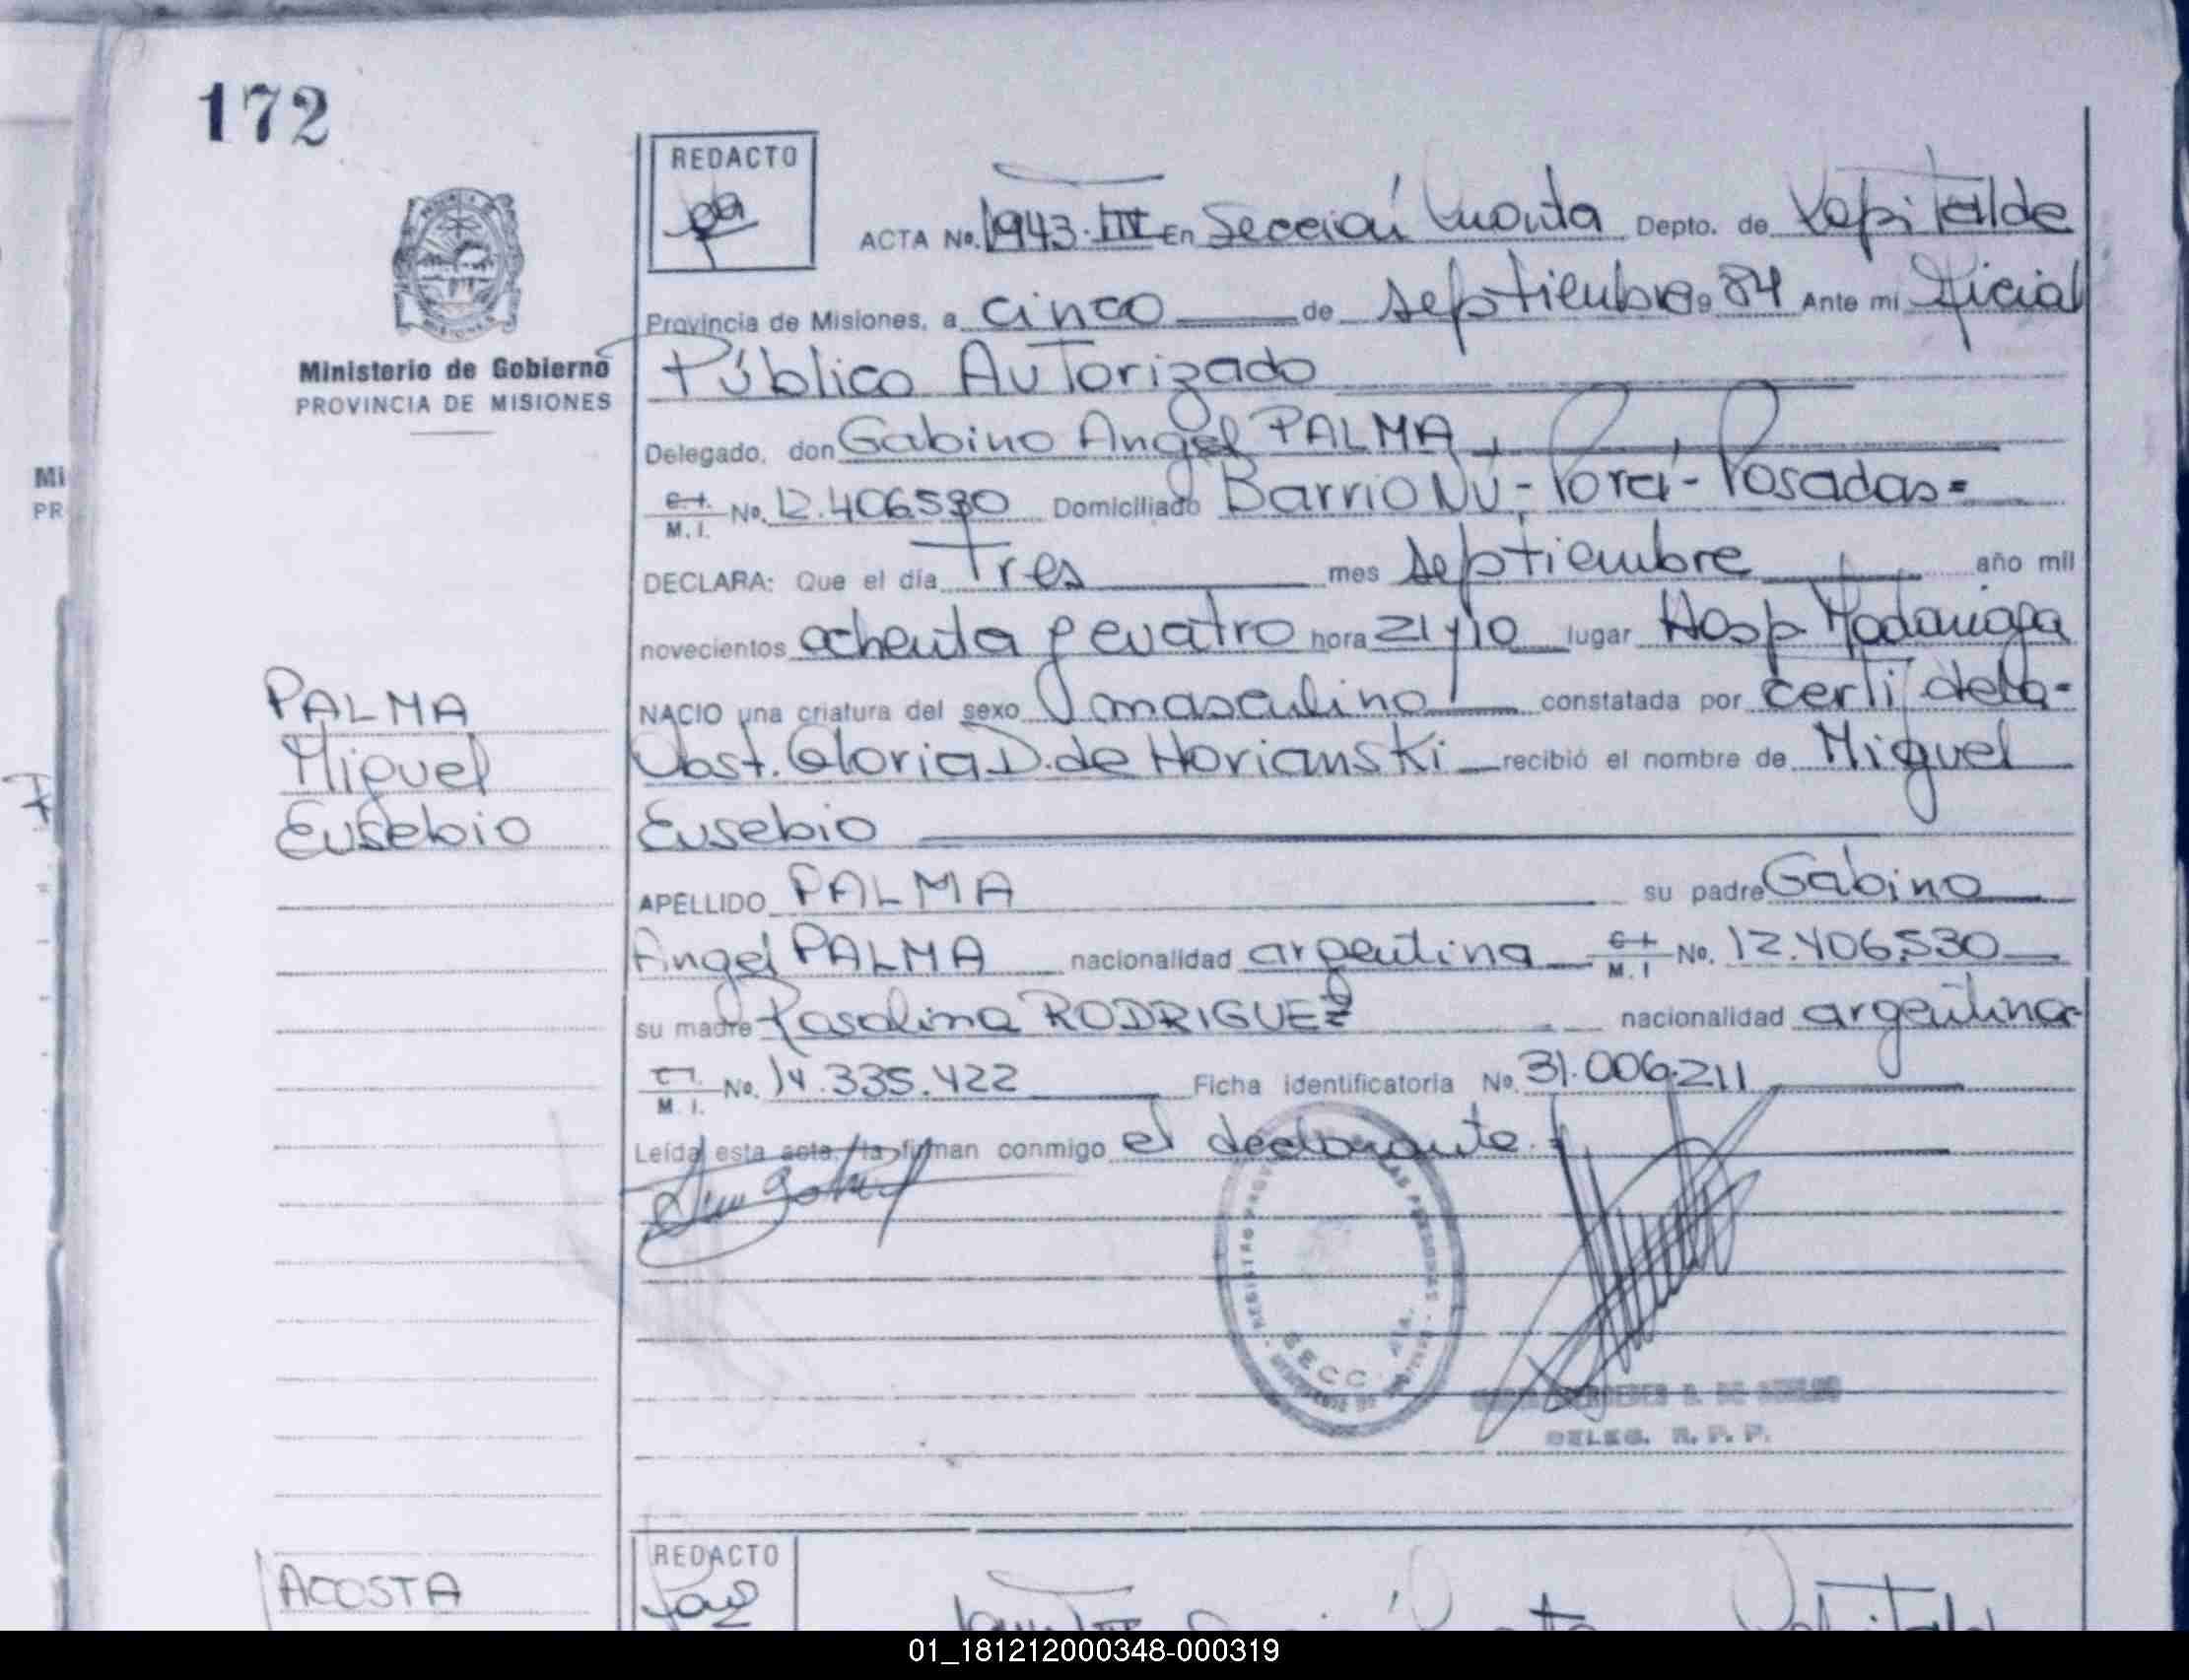 172
REDACTO
ACTA No. 1943. IIV En Sección Cuarta Depto. de Capital de
Provincia de Misiones, a cinco de septiembre 19 84 Ante mi Oficial
Público Autorizado
Ministerio de Gobierno
PROVINCIA DE MISIONES
Delegado, don Gabino Angel PALMA,
M. I. No. 12.406.530 Domiciliado Barrio Ñú-Porá-Posadas=
DECLARA: Que el día Tres mes septiembre año mil
novecientos ochenta y cuatro hora 21 y 10 lugar Hosp Madariaga
NACIO una criatura del sexo masculino constatada por certi de la-
Obst. Gloria D. de Horianski recibió el nombre de Miguel
Eusebio
PALMA
Miguel
Eusebio
APELLIDO PALMA su padre Gabino
Angel PALMA nacionalidad argentina M. I No. 12.406.530
su madre Rosalina RODRIGUEZ nacionalidad argentina-
M. I. No. 14.335.422 Ficha identificatoria No. 31.006.211
Leída esta acta, la firman conmigo el declarante.
SECC. 4TA.
DELEG. R. P. P.
ACOSTA
REDACTO
Mi
PR
01_181212000348-000319